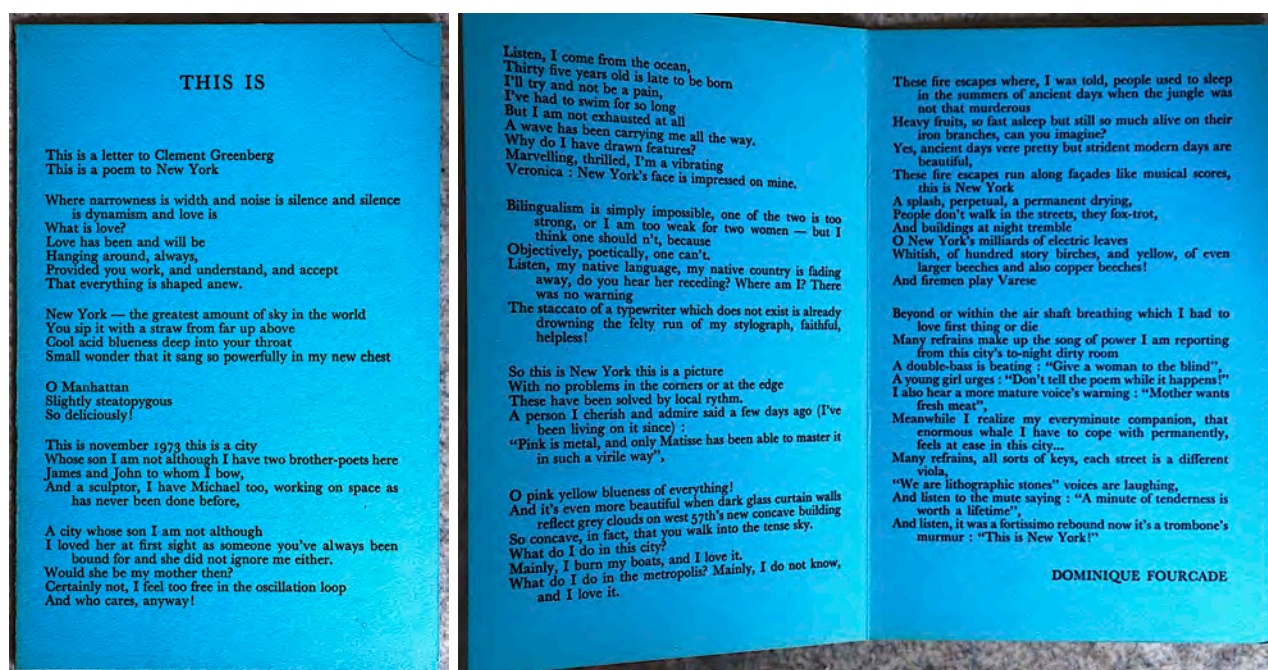 THIS IS
This is a letter to Clement Greenberg
This is a poem to New York
Where narrowness is width and noise is silence and silence
is dynamism and love is
What is love?
Love has been and will be
Hanging around, always,
Provided you work, and understand, and accept
That everything is shaped anew.
New York — the greatest amount of sky in the world
You sip it with a straw from far up above
Cool acid blueness deep into your throat
Small wonder that it sang so powerfully in my new chest
O Manhattan
Slightly steatopygous
So deliciously!
This is november 1973 this is a city
Whose son I am not although I have two brother-poets here
James and John to whom I bow,
And a sculptor, I have Michael too, working on space as
has never been done before,
A city whose son I am not although
I loved her at first sight as someone you've always been
bound for and she did not ignore me either.
Would she be my mother then?
Certainly not, I feel too free in the oscillation loop
And who cares, anyway!
Listen, I come from the ocean,
Thirty five years old is late to be born
I'll try and not be a pain,
I've had to swim for so long
But I am not exhausted at all
A wave has been carrying me all the way.
Why do I have drawn features?
Marvelling, thrilled, I'm a vibrating
Veronica : New York's face is impressed on mine.
Bilingualism is simply impossible, one of the two is too
strong, or I am too weak for two women — but I
think one should n't, because
Objectively, poetically, one can't.
Listen, my native language, my native country is fading
away, do you hear her receding? Where am I? There
was no warning
The staccato of a typewriter which does not exist is already
drowning the felty run of my stylograph, faithful,
helpless!
So this is New York this is a picture
With no problems in the corners or at the edge
These have been solved by local rythm.
A person I cherish and admire said a few days ago (I've
been living on it since) :
“Pink is metal, and only Matisse has been able to master it
in such a virile way”,
O pink yellow blueness of everything!
And it's even more beautiful when dark glass curtain walls
reflect grey clouds on west 57th's new concave building
So concave, in fact, that you walk into the tense sky.
What do I do in this city?
Mainly, I burn my boats, and I love it.
What do I do in the metropolis? Mainly, I do not know,
and I love it.
These fire escapes where, I was told, people used to sleep
in the summers of ancient days when the jungle was
not that murderous
Heavy fruits, so fast asleep but still so much alive on their
iron branches, can you imagine?
Yes, ancient days vere pretty but strident modern days are
beautiful,
These fire escapes run along façades like musical scores,
this is New York
A splash, perpetual, a permanent drying,
People don't walk in the streets, they fox-trot,
And buildings at night tremble
O New York's milliards of electric leaves
Whitish, of hundred story birches, and yellow, of even
larger beeches and also copper beeches!
And firemen play Varese
Beyond or within the air shaft breathing which I had to
love first thing or die
Many refrains make up the song of power I am reporting
from this city's to-night dirty room
A double-bass is beating : “Give a woman to the blind”,
A young girl urges : “Don't tell the poem while it happens!”
I also hear a more mature voice's warning : “Mother wants
fresh meat”,
Meanwhile I realize my everyminute companion, that
enormous whale I have to cope with permanently,
feels at ease in this city...
Many refrains, all sorts of keys, each street is a different
viola,
“We are lithographic stones” voices are laughing,
And listen to the mute saying : “A minute of tenderness is
worth a lifetime”,
And listen, it was a fortissimo rebound now it's a trombone's
murmur : “This is New York!”
DOMINIQUE FOURCADE